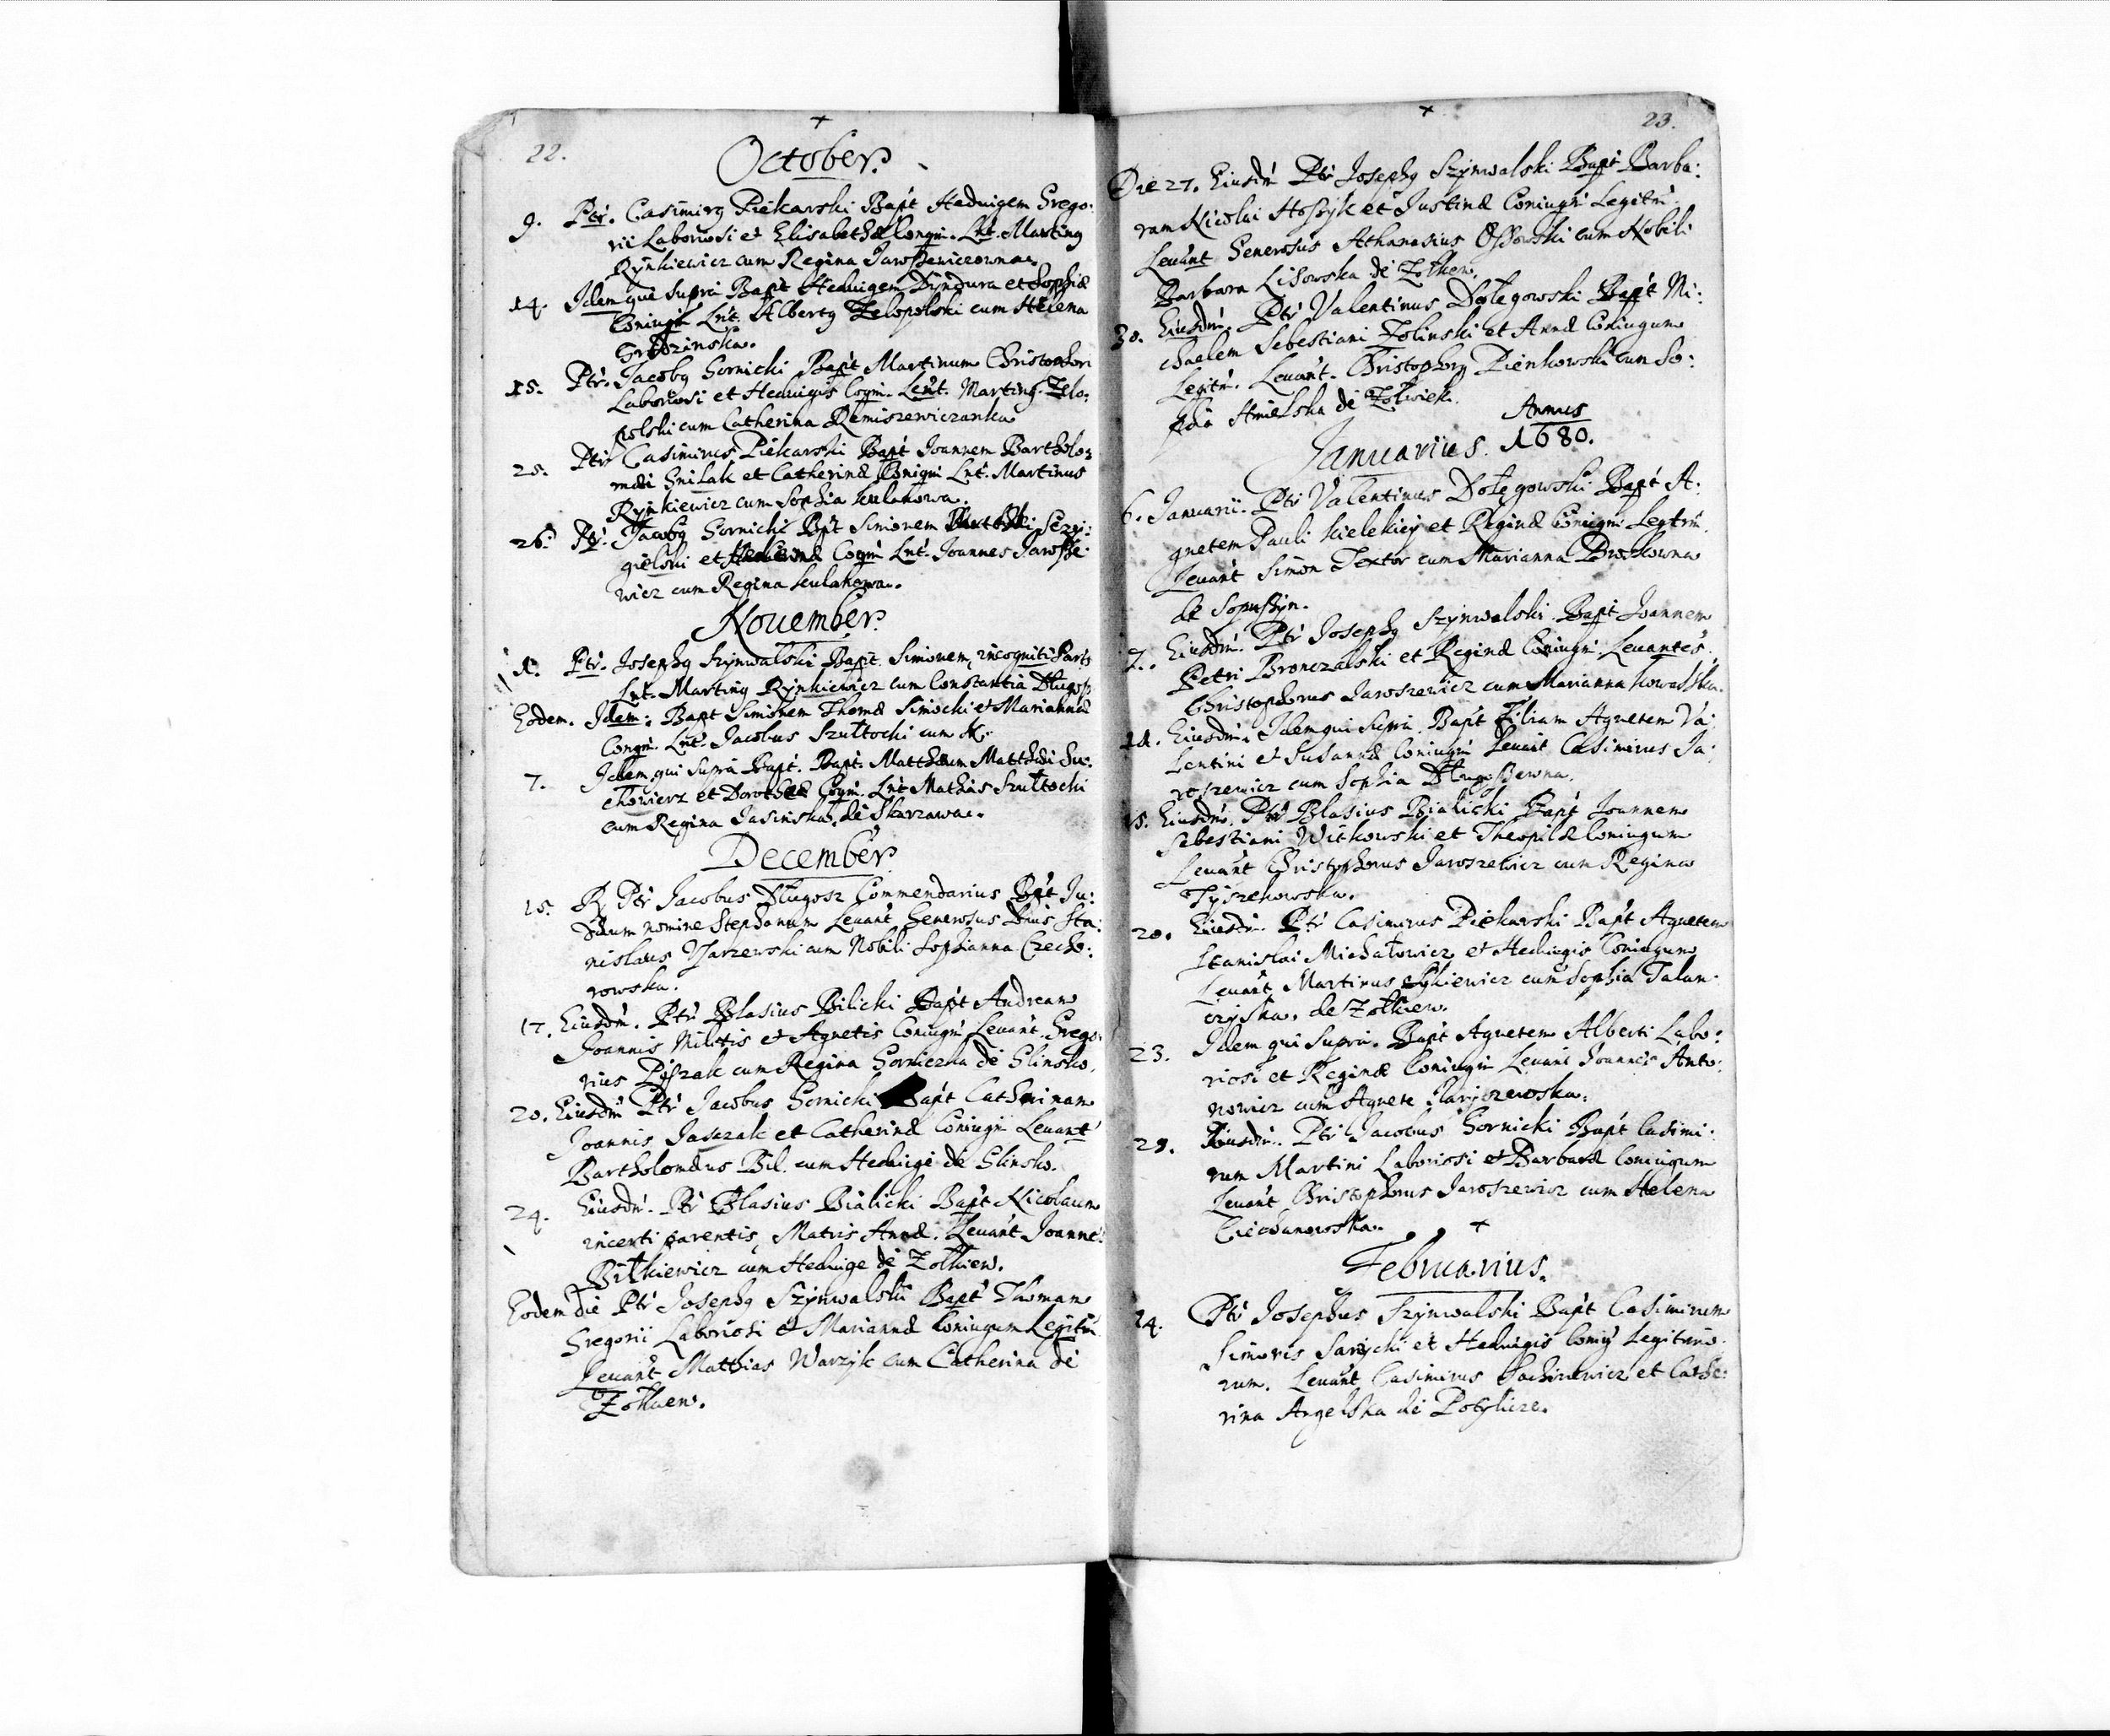 22.
October.
9. Ptr. Casimirq Piekarski Bapt Heduigem Grego:
rii Laboriosi et Elisabethæ Congu. Lnt. Martinq
Rynkiewicz cum Regina
14. Idem qui supra Bapt Heduigem Dyndura et Sophiæ
Coniugu Lnt. Albertq Zelopolski cum Helena
Grodzinska.
15. Ptr. Jacobq Gornicki Bapt Martinum Christophori
Laboriosi et Heduigis Cogu. Leut. Martinq Zelo:
polski cum Catherina Remiszewiczanka
25. Ptr Casimirus Piekarski Bapt Joannem Bartholo:
mæi Gnilak et Catherinæ Conigu Lnt. Martinus
Rynkiewicz cum Sophia Kulakowa.
26. Ptr. Jacobq Gornicki Bpt Simonem
et Cogu Lnt. Joannes Jarosze:
wicz cum Regina Kulakowa.
Nouember.
1. Ptr. Josephq Szynwalski Bapt. Simonem, incogniti
Lnt. Martinq Rynkiewicz cum Constantia Dlugos
Eodem. Idem: Bapt Simonem Thomæ Simocki et Mariannæ
Congu. Lnt. Jacobus Szultocki cum N.
7. Idem qui supra Bapt. Bapt. Matthæum Matthæi Su:
chowierz et Dorotheæ Cogu. Lnt Mathias Szultocki
cum Regina Jasinska, de Skwarzawa.
December
15. R Ptr Jacobus Dlugosz Commendarius Bpt Ju:
dæum nomine Stephanum Leuant Generosus Dnus Sta:
nislaus Jarzewski cum Nobili Sophianna Czecho:
rowska.
17. Eiusdm. Ptr Blasius Bilicki Bapt Andream
Joannis Militis et Agnetis Coniugu Leuant Grego:
rius Pyszak cum Regina Gorniczka de Glinsko.
20. Eiusdm Ptr Jacobus Gornicki Bapt Catherinam
Joannis Jasczak et Catherinæ Coniugu Leuant
Bartholomæus Bil. cum Heduige de Glinsko.
24. Eiusdm. Ptr Blasius Bialicki Bapt Nicolaum
incerti parentis, Matris Annæ. Leuant Joannes
Bilkiewicz cum Heduige de Zolkiew.
Eodem die Ptr Josephq Szynwalski Bapt Thomam
Gregorii Laboriosi et Mariannæ Coniugum Legitim
Leuant Matthias Warzyk cum Catherina de
Zolkiew.
23.
Die 27. Eiusdm Ptr Josephq Szynwalski Bapt Barba:
ram Nicolai et Justinæ Coniugu Legitm.
Leuant Generosus Athanasius Ossowski cum Nobili
Barbara Lisowska de Zolkiew.
30. Eiusdm. Ptr Valentinus Dolegowski Bapt Mi:
chaelem Sebestiani Zolinski et Annæ Coniugum
Legitm. Leuant. Christophorq Pienkowski cum So:
phia de
Annus
Januarius. 1680.
6. Januarii. Ptr Valentinus Dolegowski Bapt A:
gnetem Pauli et Reginæ Coniugu Legtm.
Leuant Simon Textor cum Marianna
de Soposzyn.
7. Eiusdm. Ptr Josephq Szynwalski Bapt Joannem
Petri Bronczalski et Reginæ Coniugu Leuantes.
Christophorus Jaroszewicz cum Marianna Kowalska.
14. Eiusdm: Idem qui supra. Bapt Filiam Agnetem Va:
lentini et Susannæ Coniugu Leuant Casimirus Ja:
roszewicz cum Sophia Dlugoszewna.
15. Eiusdm. Ptr Blasius Bialicki Bapt Joannem
Sebestiani Witkowski et Theophilæ Coniugum
Leuant Christophorus Jaroszewicz cum Regina
Tyszekowska.
20. Eiusdm. Ptr Casimirus Piekarski Bapt Agnetem
Stanislai Michalowicz et Heduigis Coniugum
Leuant Martinus cum Sophia Talan:
czyska. de Zolkiew.
23. Idem qui supra. Bapt Agnetem Alberti Labo:
riosi et Reginæ Coniugu Leuant Joannes Anto:
nowicz cum Agnete
29. Eiusdm. Ptr Jacobus Gornicki Bapt Casimi:
rum Martini Laboriosi et Barbaræ Coniugum
Leuant Christophorus Jaroszewicz cum Helena
Ciechanowska.
Februarius.
14. Ptr Josephus Szynwalski Bapt Casimirum
Simonis Sarycki et Heduigis Coniu Legitimo
rum. Leuant Casimirus et Cathe:
rina Angelska de Potylicze.